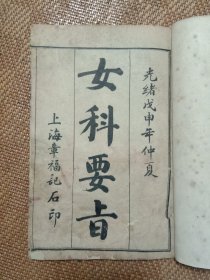 光緒戊申年仲夏
女科要旨
上海章福記石印